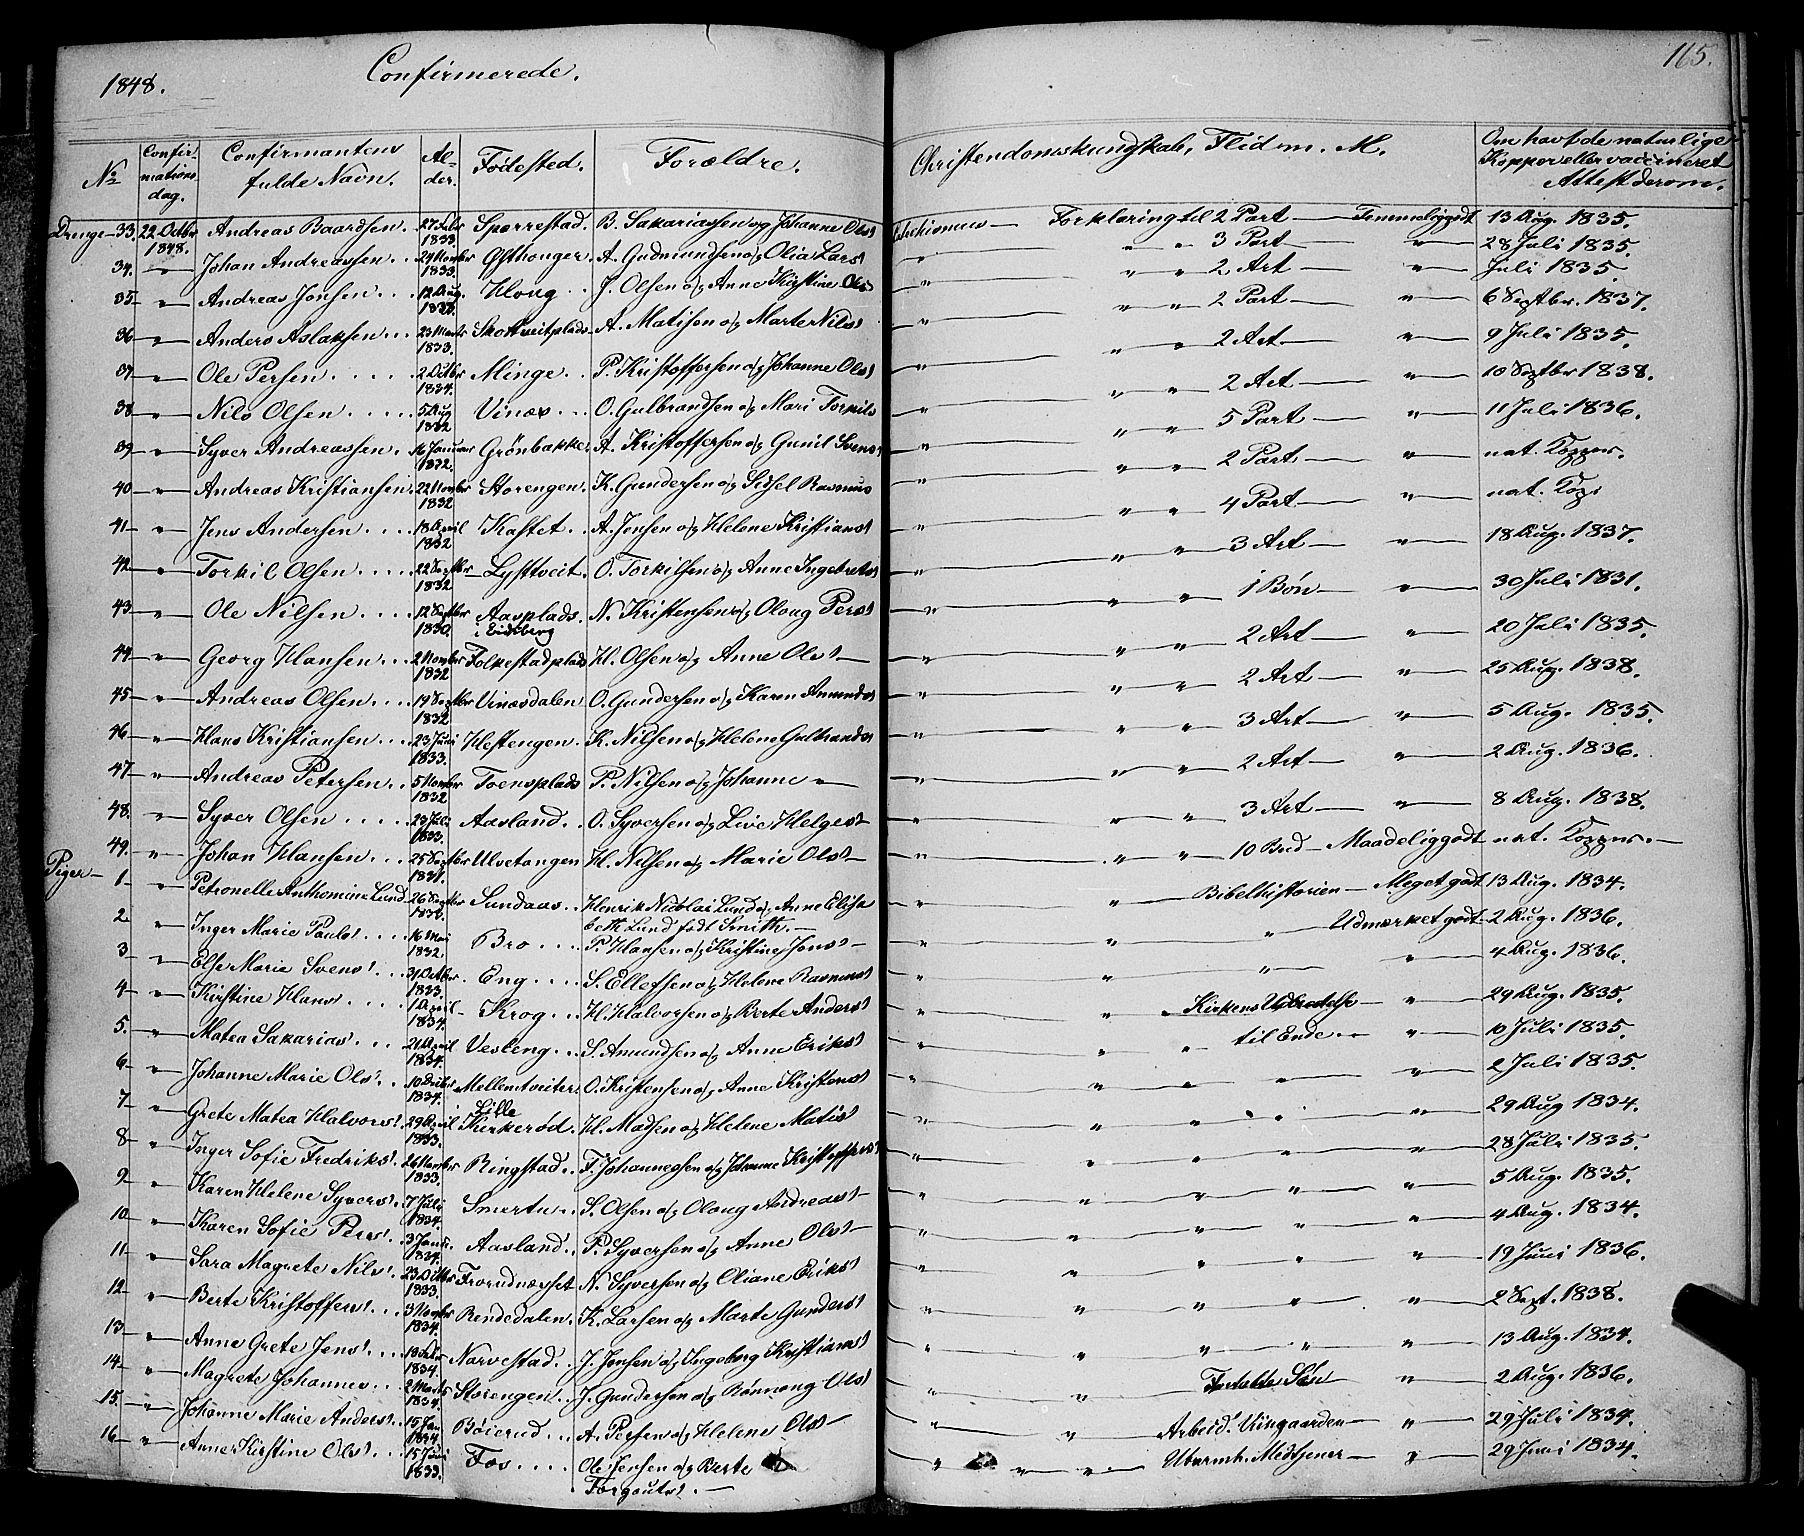 1848.
Confirmerede.
165.
No
Confirmations dag.
Confirmantens fulde Navn.
Alder.
Fødested.
Forældre.
Christendomskundskab, Flid m. M.
Om havt de naturlige Kopper eller vaccineret Attest derom.
Drenge 33. 22 Octbr 1848. Andreas Baardsen. 27 Febr 1833. Sperrestad. B. Sakariassen og Johanne Olsd — Forklaring til 2 Part — Temmeliggodt 13 Aug. 1835.
34. " Johan Andreassen. 24 Novmbr 1833. A. Gudmundsen og Olia Larsd " " " 3 Part " 28 Juli 1835.
35 " Andreas Jonsen 12 Aug. Houg. J. Olsen og Anne Kirstine Olsd " " " 2 Art " Juli 1835
36 " Anders Aslaksen 23 Marts 1833. Skottveitplads A. Matisen og Marte Nilsd " " " 2 Part " 6 Septbr. 1837.
37 " Ole Persen 2 Octbr 1834. Minge P. Kristoffersen og Johanne Olsd " " " 2 Art " 9 Juli 1835.
38 " Nils Olsen 5 Aug 1832 Vinæs O. Gulbrandsen og Mari Torkils " " " 2 Art " 10 Septbr 1838.
39 " Syver Andreassen 16 Januar 1832. Grønbakke. A. Kristoffersen og Gunil Svensd " " " 5 Part " 11 Juli 1836.
40 " Andreas Kristiansen. 22 Novmbr 1832 Storengen. K. Gundersen og Sidsel Rasmus " " " 2 Part " nat. Kopper.
41 " Jens Andersen 18 April 1832 Kastet A. Jensen og Helene Kristiansd " " " 4 Part " nat. Kop:
42 " Torkil Olsen 22 Septbr 1832 Lysttveit. O. Torkilsen og Anne Ingebretsd " " " 3 Art " 18 Aug. 1837.
43 " Ole Nilsen 12 Septbr 1830. Aasplads. i Eidsberg N. Kristensen og Oloug Persd " " " 1 Bøn " 30 Juli 1831.
44 " Georg Hansen 2 Novmbr 1832 Folkestadplads H. Olsen og Anne Olsd " " " 2 Art " 20 Juli 1835.
45 " Andreas Olsen 19 Septbr 1832 Vinæsdalen O. Gundersen og Karen Amundsd " " " 2 Art " 25 Aug. 1838.
46 " Hans Kristiansen 23 Juni 1833. Hestengen. K. Nilsen og Helene Gulbrandsd " " " 3 Art " 5 Aug. 1835.
47 " Andreas Petersen 5 Novmbr 1832 Toensplads P. Nilsen og Johanne " " " " 2 Art " 2 Aug. 1836.
48. " Syver Olsen 23 Juli 1833. Aasland. O. Syversen og Live Helgesd " " " 3 Art " 8 Aug. 1838.
49. " Johan Hansen 25 Septbr 1831. Ulvetangen H. Nilsen og Marie Olsd " " " 10 Bud — Maadeliggodt nat. Kopper.
Piger 1 " Petronelle Anthomine Lund 26 Septbr Sundaas Henrik Nicolai Lund og Anne Elisabeth Lund født Smith. " " Bibelhistorien — Meget godt 13 Aug. 1834.
2 " Inger Marie Paulsd 16 Mai 1832. Bro P. Hansen og Kirstine Jensd " " " Udmærket godt 2 Aug. 1836.
3 " Else Marie Svensd 31 Octbr 1833. Eng S. Ellefsen og Helene Rasmusd " " " " 4 Aug. 1836.
4 " Kirstine Hansd 1 April 1834. Krog H. Halvorsen og Berte Andersd " " " Kirkens Udbredelse " 29 Aug. 1835.
5. " Matea Sakarias 21 April 1834. Vesteng S. Amundsen og Anne Eriksd " " " til Ende " 10 Juli 1835.
6 " Johanne Marie Olsd 10 Decbr 1834. O. Kristensen og Anne Kristensd " " " " " 2 Juli 1835.
7 " Grete Matea Halvorsd 29 April 1833. Lille Kirkerød. H. Madsen og Helene Matisd " " " " " 29 Aug 1834.
8 " Inger Sofie Fredriksd 26 Novmbr 1833. Ringstad. F. Johannessen og Johanne Kristoffersd " " " " " 28 Juli 1835.
9 " Karen Helene Syversd 7 Juli 1834. Smertu S. Olsen og Oloug Andreasd " " " " " 5 Aug. 1835.
10 " Karen Sofie Persd 3 Janr. 1834. Aasland P. Syversen og Anne Olsd " " " " " 4 Aug. 1834.
11 " Sara Magrete Nilsd 23 Octbr 1833. Frorudnæsset N. Syversen og Oliane Eriksd " " " " " 19 Juni 1836.
12 " Berte Kristoffersd 3 Novmbr 1834. Rendedalen. K. Larsen og Marte Gundersd " " " " " 2 Sept. 1838.
13 " Anne Grete Jensd 1834. Narvestad J. Jensen og Ingeborg Kristiansd " " " " " 13 Aug. 1834.
14 " Magrete Johannes 2 Marts 1834. Storengen J. Gundersen og Rønnaug Olsd " " Fortabte Søn " 2 Aug. 1836.
15. " Johanne Marie Andersd 15 Jan 1834 Bøierud A. Persen og Helene Olsd " " Arbeid. Viingaarden " 29 Juli 1834.
16 " Anne Kirstine Olsd 15 Juni 1833. Fos Ole Jensen og Berte Torgautsd. " " " " Ubarmh. Medtjener " 29 Juni 1834.